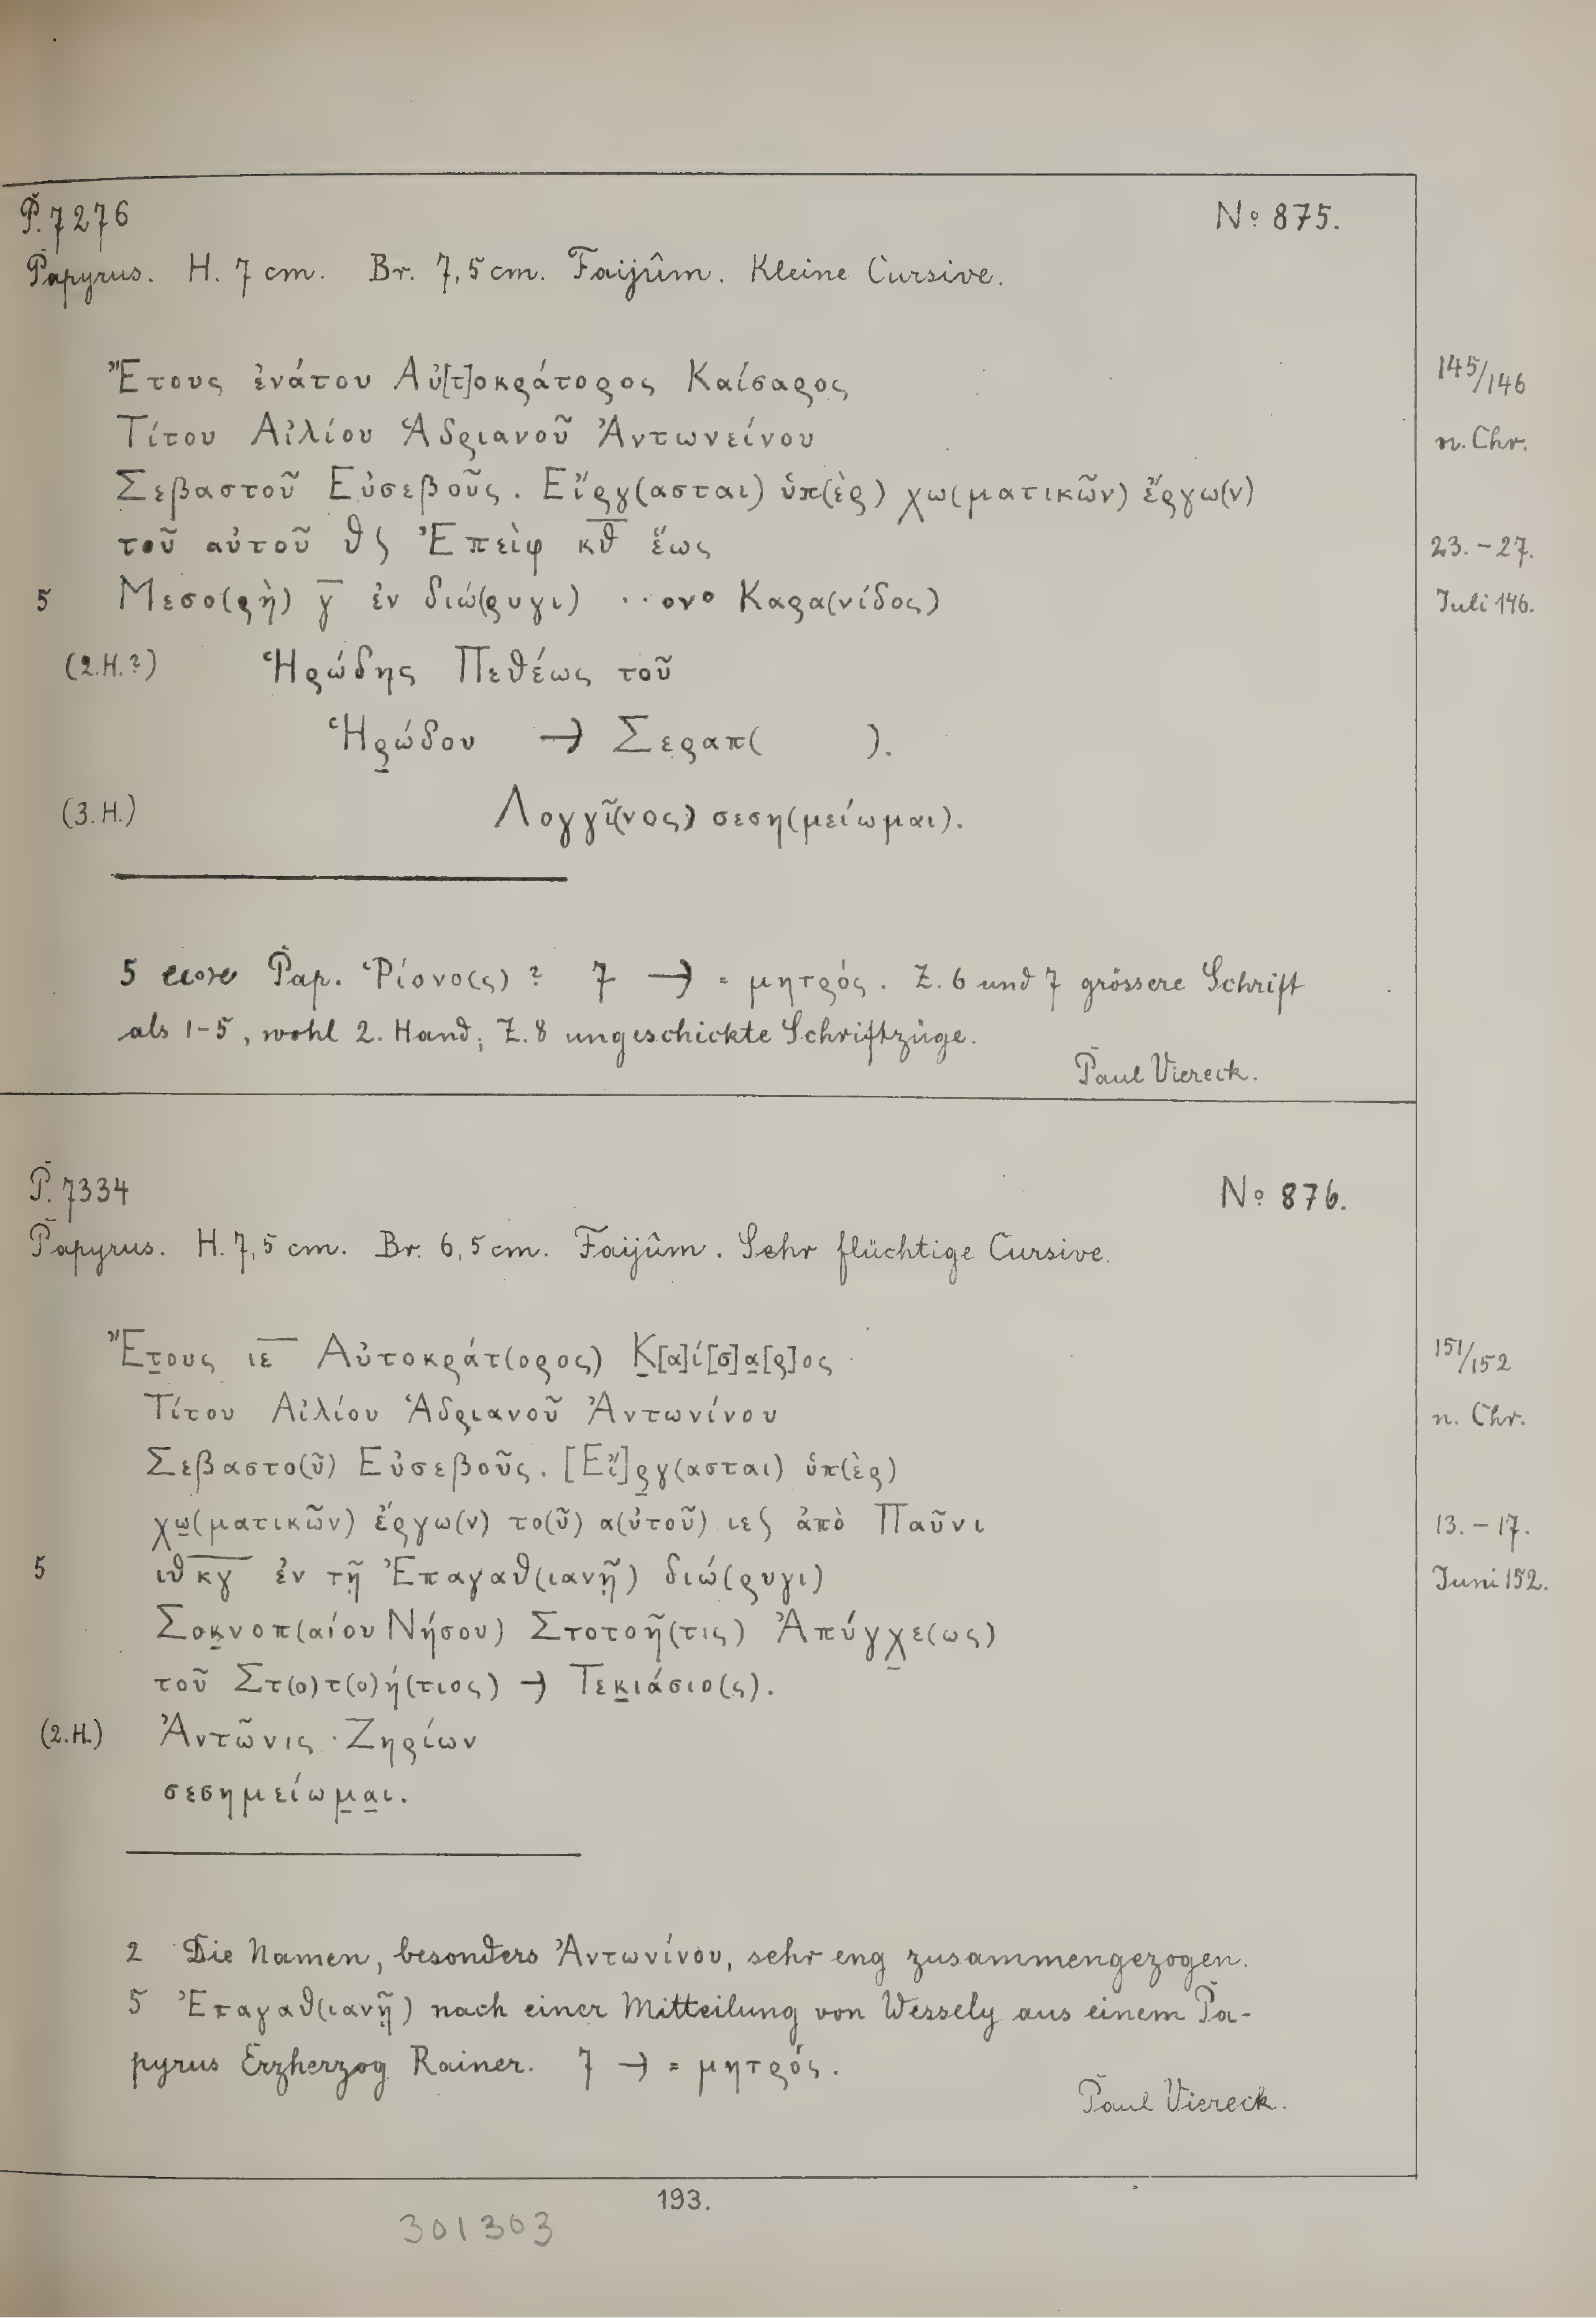 P. 7276 No 875.
Papyrus. H. 7 cm. Br. 7,5 cm. Faijûm. Kleine Cursive.
Ἔτους ἐνάτου Αὐ[τ]οκράτορος Καίσαρος 145/146
Τίτου Αἰλίου Ἁδριανοῦ Ἀντωνείνου n. Chr.
Σεβαστοῦ Εὐσεβοῦς. Εἴργ(ασται) ὑπ(ὲρ) χω(ματικῶν) ἔργω(ν)
τοῦ αὐτοῦ θϛ Ἐπεὶφ κ̅θ̅ ἕως 23.-27.
5 Μεσο(ρὴ) γ̅ ἐν διώ(ρυγι) ··ονο Καρα(νίδος) Juli 146.
(2.H.?) Ἡρώδης Πεθέως τοῦ
Ἡρ̣ώδου → Σεραπ( ).
(3.H.) Λογγῖ(νος) σεση(μείωμαι).
5 Pap. Ῥίονο(ς)? 7 → = μητρός. Z. 6 und 7 grössere Schrift
als 1-5, wohl 2. Hand; Z. 8 ungeschickte Schriftzüge.
Paul Viereck.
P. 7334 No 876.
Papyrus. H. 7,5 cm. Br. 6,5 cm. Faijûm. Sehr flüchtige Cursive.
Ἔτ̣ους ι̅ε̅ Αὐτοκράτ(ορος) Κ̣[α]ί[σ]α̣[ρ]ος 151/152
Τίτου Αἰλίου Ἁδριανοῦ Ἀντωνίνου n. Chr.
Σεβαστο(ῦ) Εὐσεβοῦς. [Εἴ]ρ̣γ(ασται) ὑπ(ὲρ)
χω̣(ματικῶν) ἔργω(ν) το(ῦ) α(ὐτοῦ) ιεϛ ἀπὸ Παῦνι 13.-17.
5 ιθ κ̅γ̅ ἐν τῇ Ἐπαγαθ(ιανῇ) διώ(ρυγι) Juni 152.
Σοκ̣νοπ(αίου Νήσου) Στοτοῆ(τις) Ἀπύγχ̣ε(ως)
τοῦ Στ(ο)τ(ο)ή(τιος) → Τεκ̣ιάσιο(ς).
(2.H.) Ἀντῶνις · Ζηρίων
σεσημείωμ̣α̣ι.
2 Die Namen, besonders Ἀντωνίνου, sehr eng zusammengezogen.
5 Ἐπαγαθ(ιανῇ) nach einer Mitteilung von Wessely aus einem Pa-
pyrus Erzherzog Rainer. 7 → = μητρός.
Paul Viereck.
193.
301303